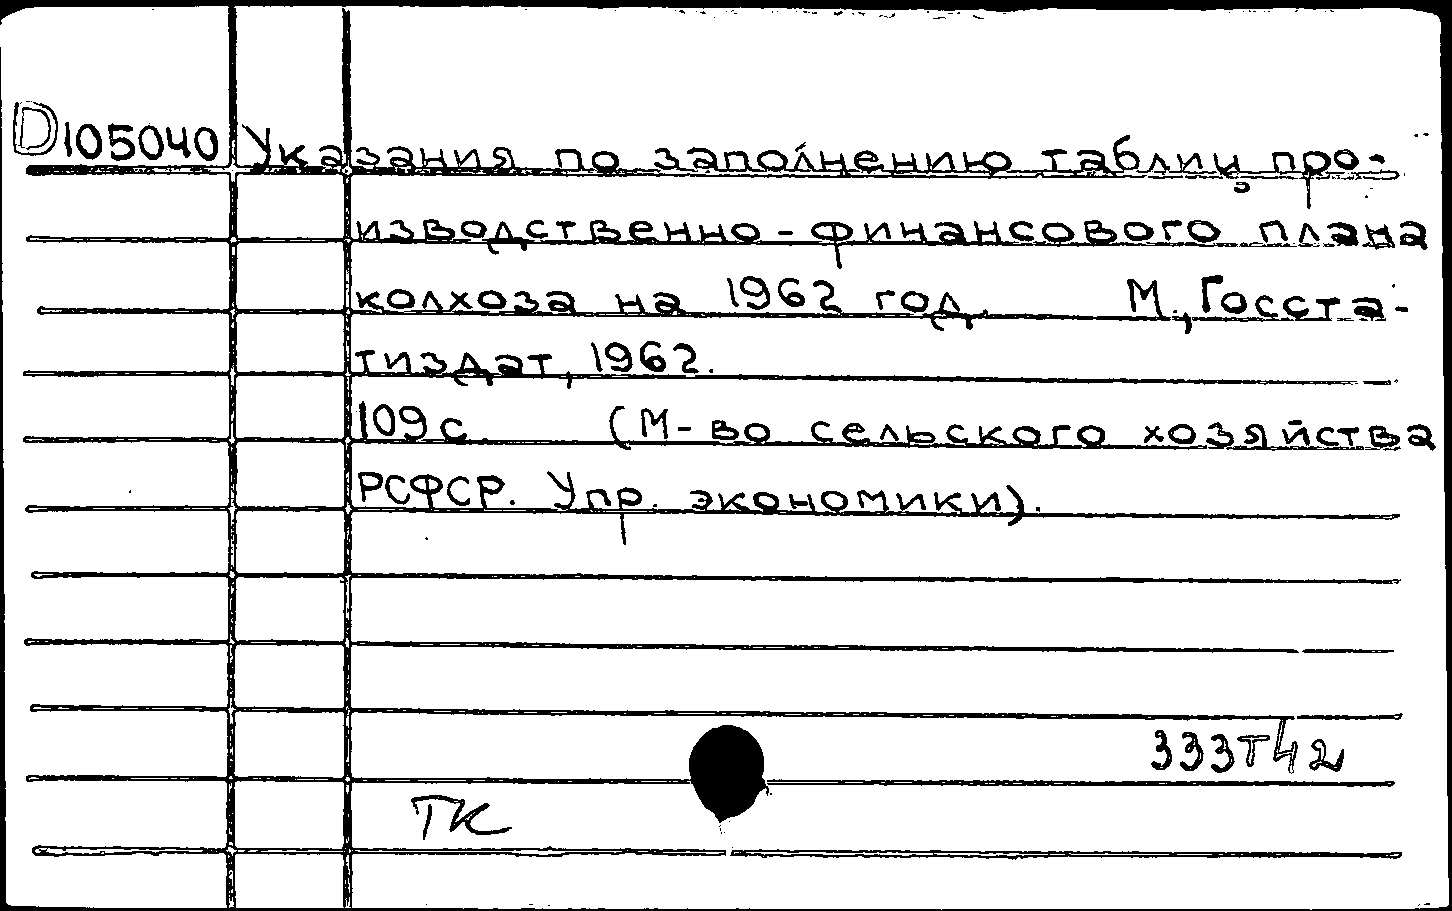 D105040 Указания по заполнению таблиц про-
изводственно-финансового плана
колхоза на 1962 год. М., Госста-
тиздат, 1962.
109 с. (М-во сельского хозяйства
РСФСР. Упр. экономики).
333т42
ТК